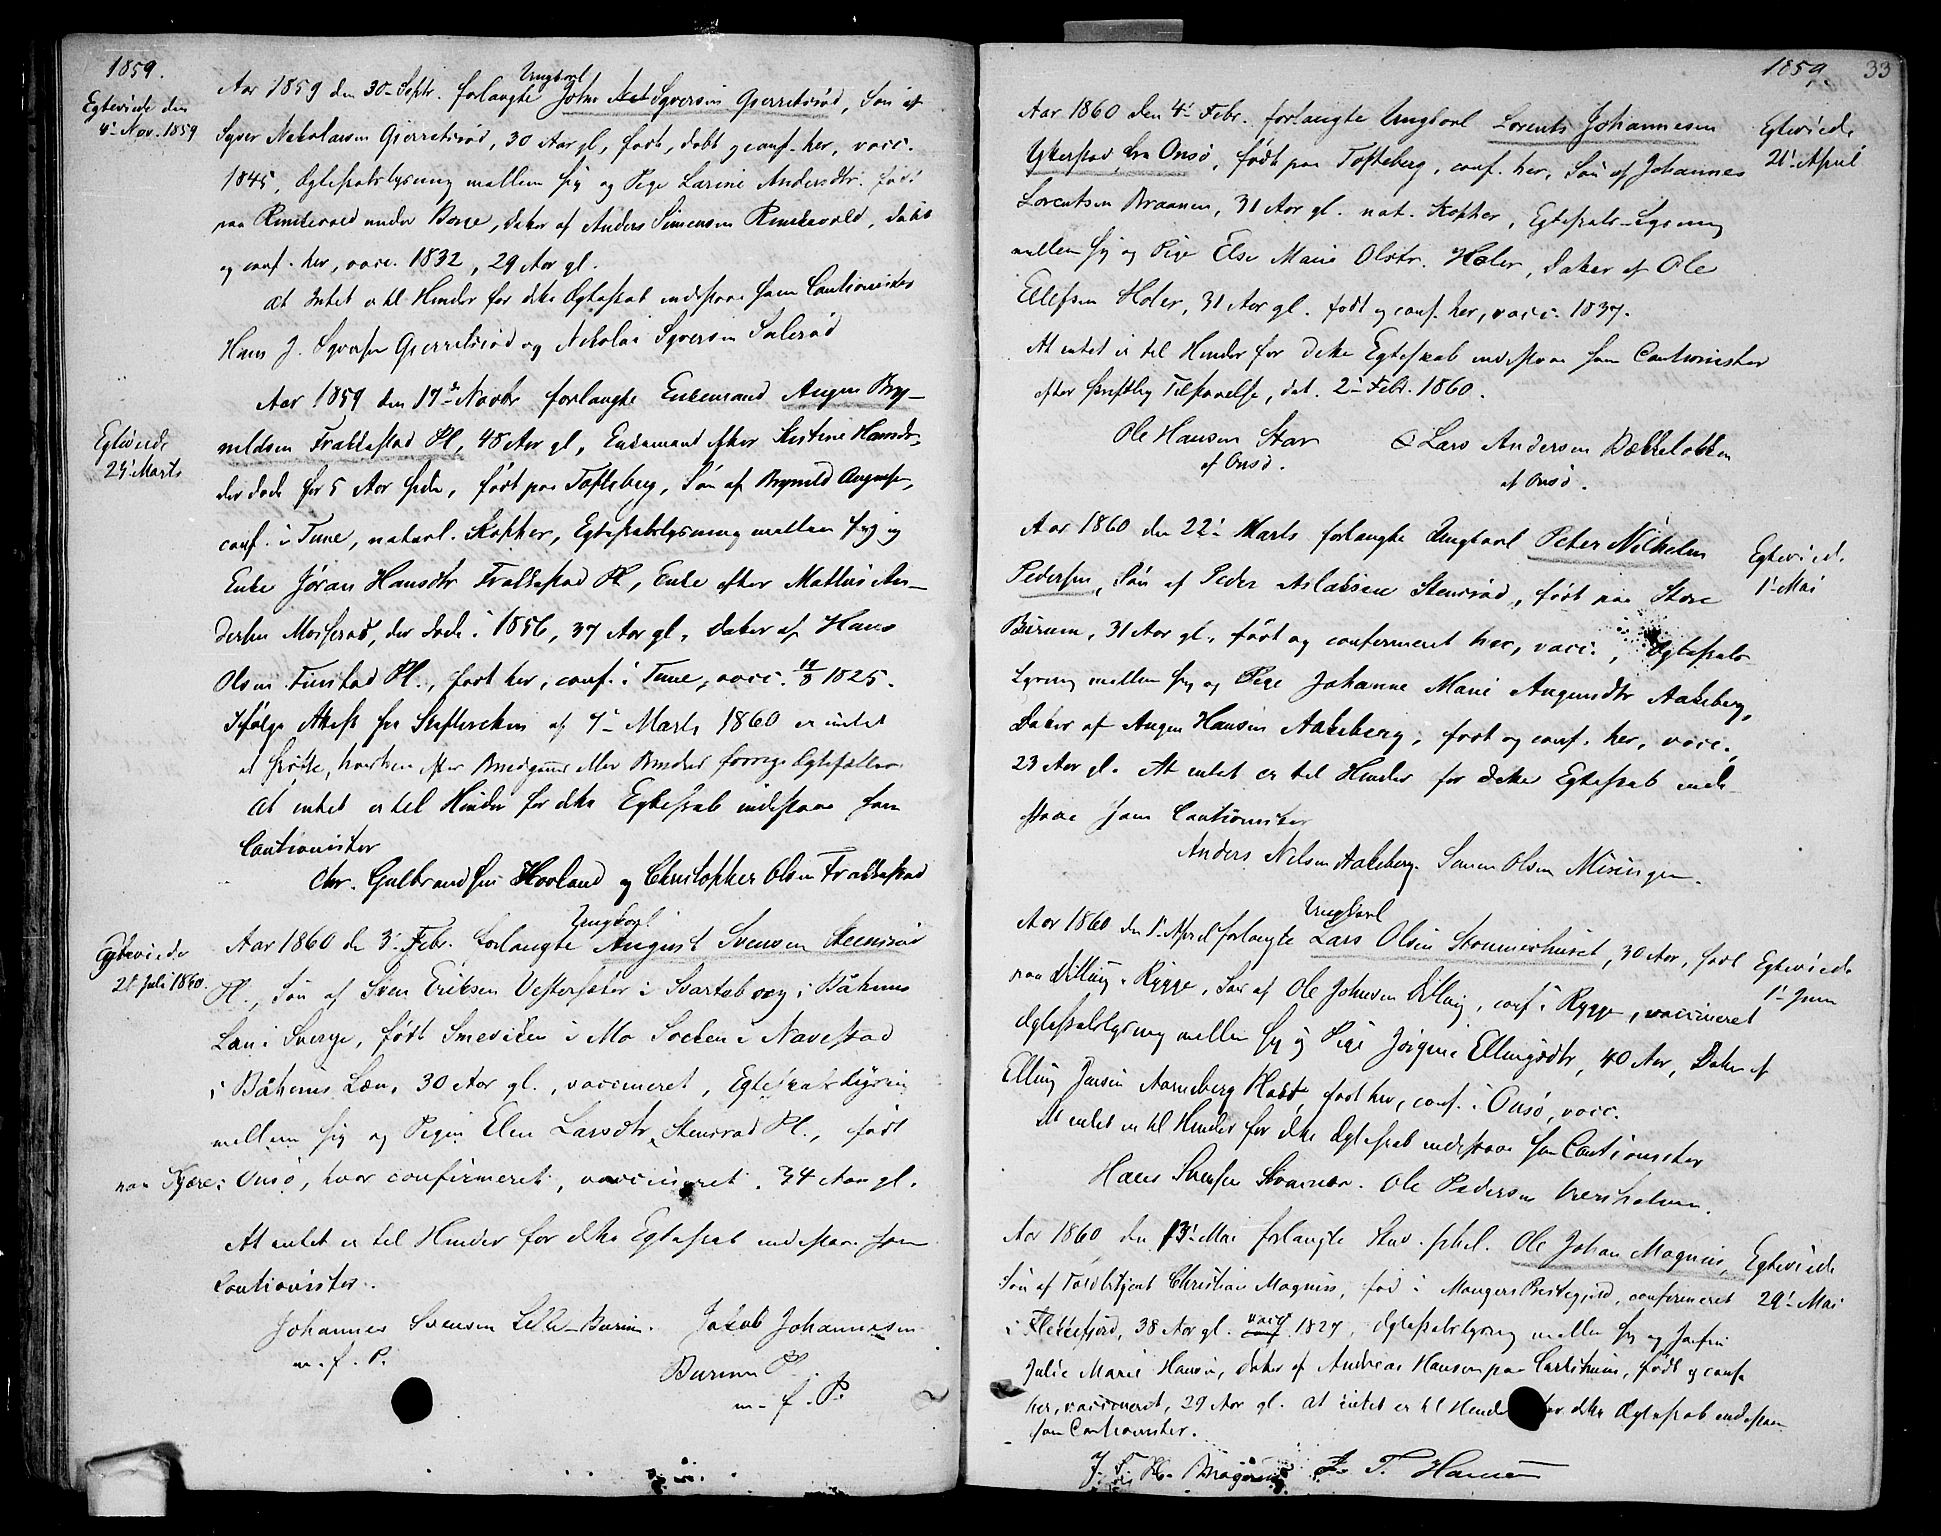 1859.
Egteviede den
4' Nov. 1859
Aar 1859 den 30- Septr. forlangte Ungkarl John Syversen Gjerretsrød, Søn af
Syver Nikolaisen Gjerretsrød, 30 Aar gl, født, døbt og conf. her, vacc.
1845, Egteskabslysning mellem sig og Pige Larine Andersdtr. født
paa under Borge, Datter af Anders Simensen , døbt
og conf. her, vacc. 1832, 29 Aar gl.
At Intet er til Hinder for dette Egteskab indestaae som Cautionister
Hans J. Syversen Gjerretsrød og Nikolai Syversen Salerød
Egteviede
24' Marts
Aar 1859 den 17de Novbr forlangte Enkemand Augen Bry-
nildsen Trattestad Pl, 48 Aar gl, Enkemand efter Kistine Hansdr,
der døde for 5 Aar siden, født paa Tofteberg, Søn af Brynild Augensen,
conf. i Tune, naturl. Kopper, Egteskabslysning mellem sig og
Enke Jøran Hansdtr Trattestad Pl, Enke efter Mathis An-
dersen Mosserød, der døde i 1856, 37 Aar gl, Datter af Hans
Olsen Finstad Pl., født her, conf. i Tune, vacc. 1825.
Ifølge Attest fra Skifteretten af 7- Marts 1860 er intet
at skifte, hverken efter Brudgoms eller Bruds forrige Egtefæller.
At intet er til Hinder for dette Egteskab indestaae som
Cautionister
Chr. Gulbrandsen Hovland og Christopher Olsen Trattestad
Egteviede
21' Juli 1860.
Aar 1860 de 3' Febr. forlangte Ungkarl August Svensen Steensrød
Pl., Søn af Sven Eriksen i Svarteborg i Båhuus
Len i Sverge, født Smeviken i Mo Socken i Navestad
i Båhuus Len, 30 Aar gl., vaccineret, Egteskabslysning
mellem sig og Pigen Elen Larsdtr. Stensrød Pl., født
paa Kjære i Onsø, hvor confirmeret, vaccineret. 34 Aar gl.
At intet er til Hinder for dette Egteskab indestaae som
Cautionister.
Johannes Svensen Lille-Burum. Jakob Johannesen
m. f. P. Burum Pl.
m. f. P.
1859 33
Aar 1860 den 4' Febr. forlangte Ungkarl Lorents Johannesen
fra Onsø, født paa Tofteberg, conf. her, Søn af Johannes
Lorentsen Braanen, 31 Aar gl. nat. Kopper, Egteskabs-Lysning
mellem sig og Pige Else Marie Olsdtr. Holer, Datter af Ole
Ellefsen Holer, 31 Aar gl. født og conf. her, vacc. 1837.
At intet er til Hinder for dette Egteskab indestaae som Cautionister
efter skriftlig Tilstaaelse, dat. 2- Febr. 1860.
Ole Hansen Star & Lars Andersen Bekkeløkken
af Onsø. af Onsø.
Egteviede
21' April
Aar 1860 den 22' Marts forlangte Ungkarl Peter Nilhelm
Pedersen, Søn af Peder Aslaksen Stensrød, født paa Store
Burum, 31 Aar gl, født og confirmeret her, vacc., Egteskabs
Lysning mellem sig og Pige Johanne Marie Augensdtr Aakeberg,
Datter af Augen Hansen Aakeberg, født og conf. her, vacc.,
23 Aar gl. At intet er til Hinder for dette Egteskab inde
staae som Cautionister
Anders Nilsen Aakeberg. Simen Olsen Misingen.
Egteviede
1' Mai
Aar 1860 den 1' April forlangte Ungkarl Lars Olsen Stommerhuset, 30 Aar, født
paa Dilling i Rygge, Søn af Ole Johnsen Dilling, conf. i Rygge, vaccineret
Egteskabslysning mellem sig og Pige Jørgine Ellingsdtr, 40 Aar, Datter af
Elling Jensen Aarneberg , født her, conf. i Onsø, vacc.
At intet er til Hinder for dette Egteskab indestaae som Cautionister
Hans Svensen . Ole Pedersen .
Egteviede
1' Juni
Aar 1860 den 13' Mai forlangte Stud. phil. Ole Johan Magnus,
Søn af Toldbetjent Christian Magnus, født i Mangers Prestegjeld, confirmeret
i Flekkefjord, 38 Aar gl. vacc 1827, Egteskabslysning mellem sig og Jomfru
Julie Marie Hansen, Datter af Andreas Hansen paa , født og conf.
her, vaccineret, 29 Aar gl. At intet er til Hinder for dette Egteskab indestaae
som Cautionister.
Magnus T. Hansen
Egteviede
29' Mai